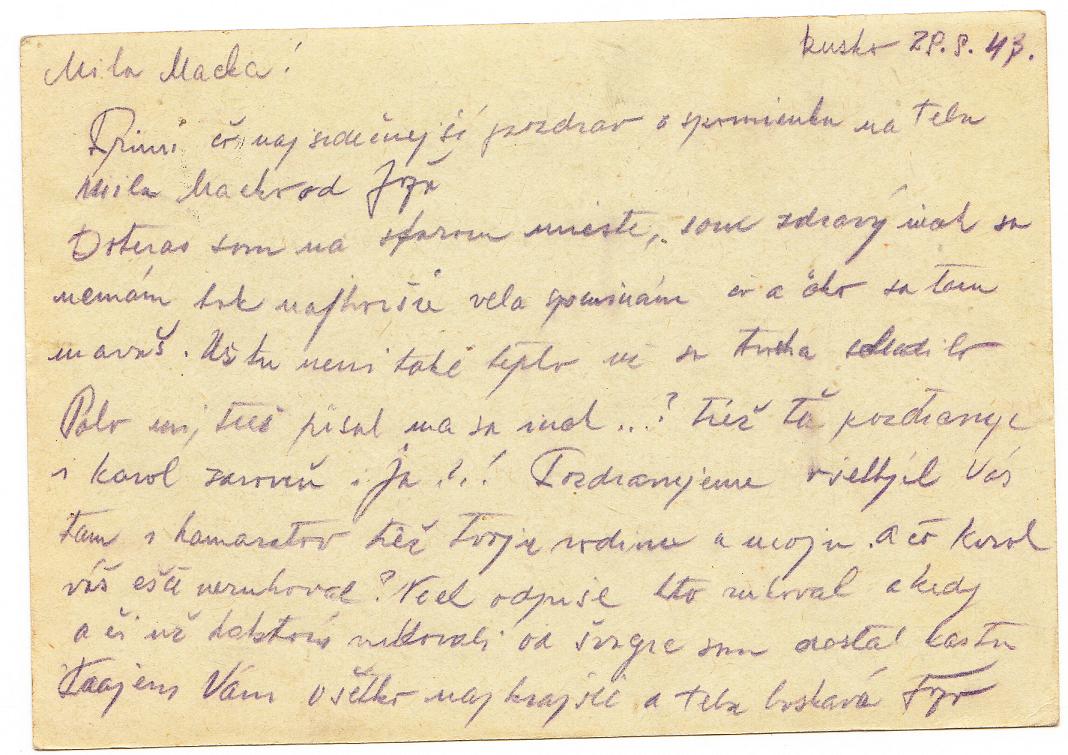 Rusko 28.8.43.
Mila Macka!
Primi čo najsrdečnejší pozdrav a spomienku na Teba
Mila Macka od Joža
Doteraz som na starom mieste, som zdravý inak sa
nemám tak najhoršie vela spominám čo a ako sa tam
mavaš. Už tu neni také teplo už sa trocha schladilo
Palo mi, tiež pisal ma sa inak ..? tiež ťa pozdravuje
i karol zaroveň i Ja !.! Pozdravujeme všetkých Vás
tam i kamaratov tiež Tvoju rodinu a moju. A čo karol
váš ešte nerukoval? Nech odpiše kto rukoval a kedy
a či už rukovali od švagra som dostal kartu
Vám všetko najkrajšie a teba boskáva Jožo